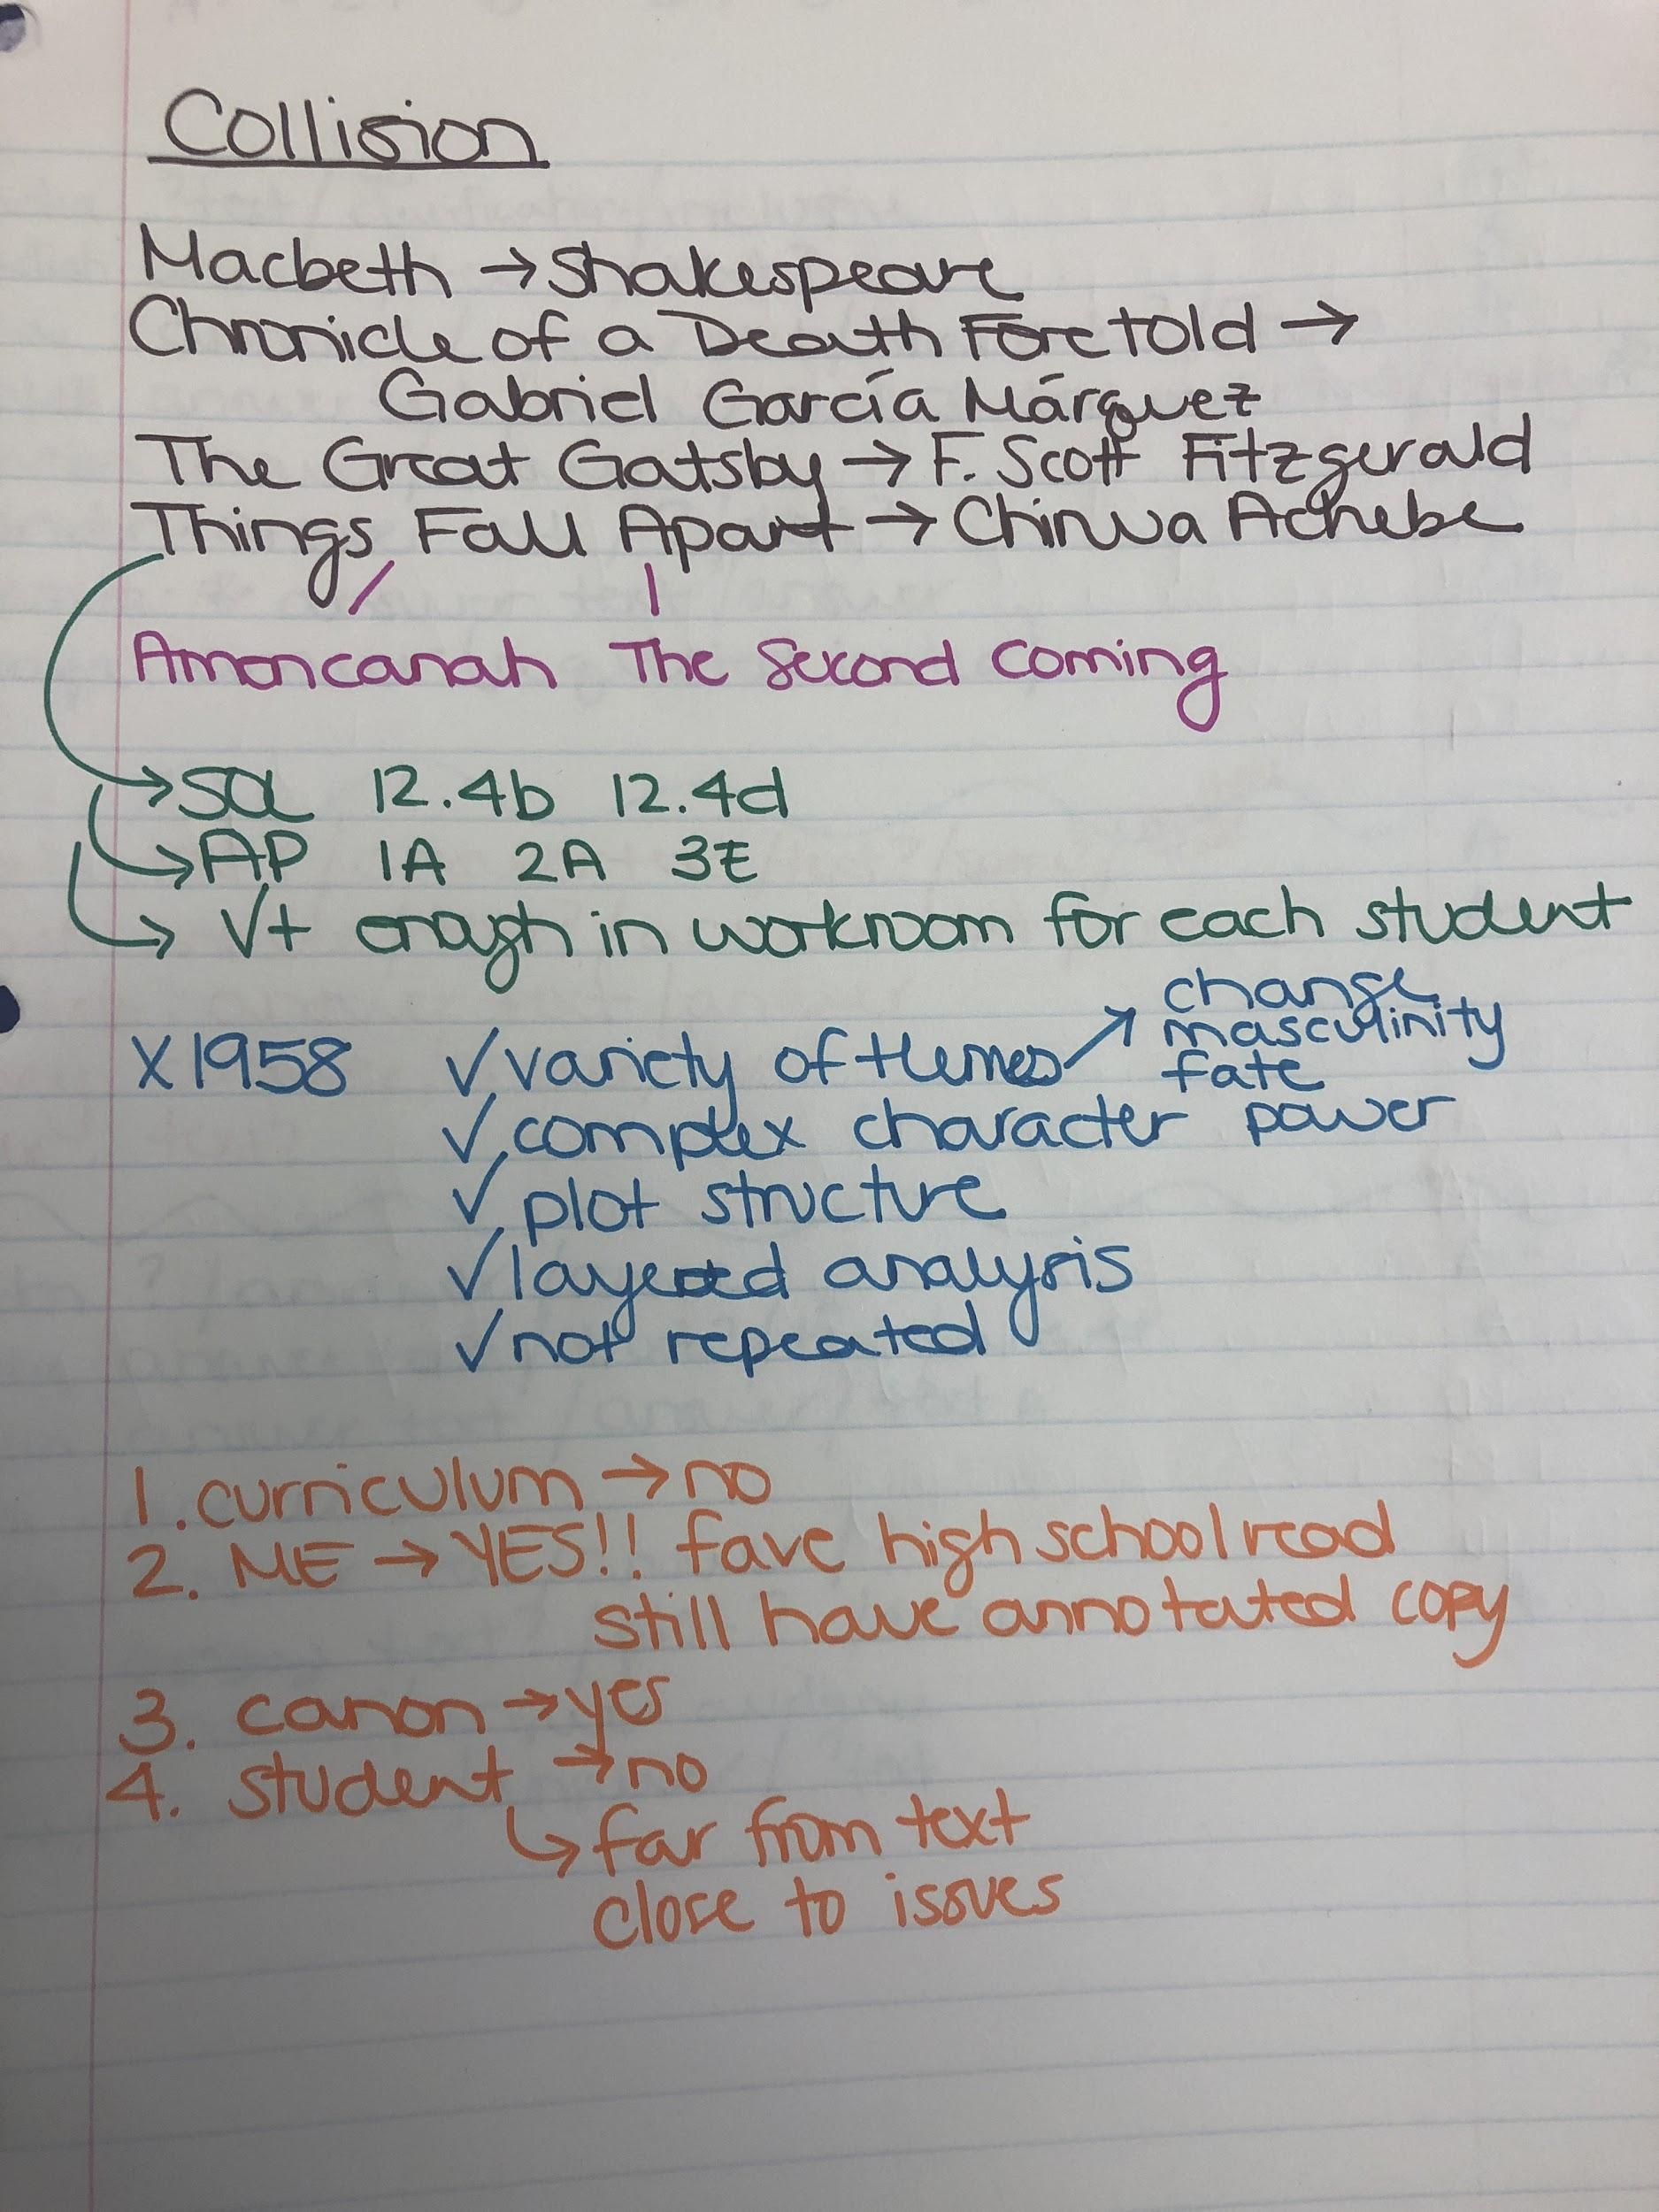 Collision
Macbeth → Shakespeare
Chronicle of a Death Foretold →
Gabriel García Márquez
The Great Gatsby → F. Scott Fitzgerald
Things Fall Apart → Chinua Achebe
Americanah The Second Coming
→ SOL 12.4b 12.4d
→ AP 1A 2A 3E
→ √+ enough in workroom for each student
X 1958 ✓ variety of themes ↗ change
masculinity
fate
✓ complex character power
✓ plot structure
✓ layered analysis
✓ not repeated
1. curriculum → no
2. ME → YES!! fave high school read
still have annotated copy
3. canon → yes
4. student → no
↳ far from text
close to issues